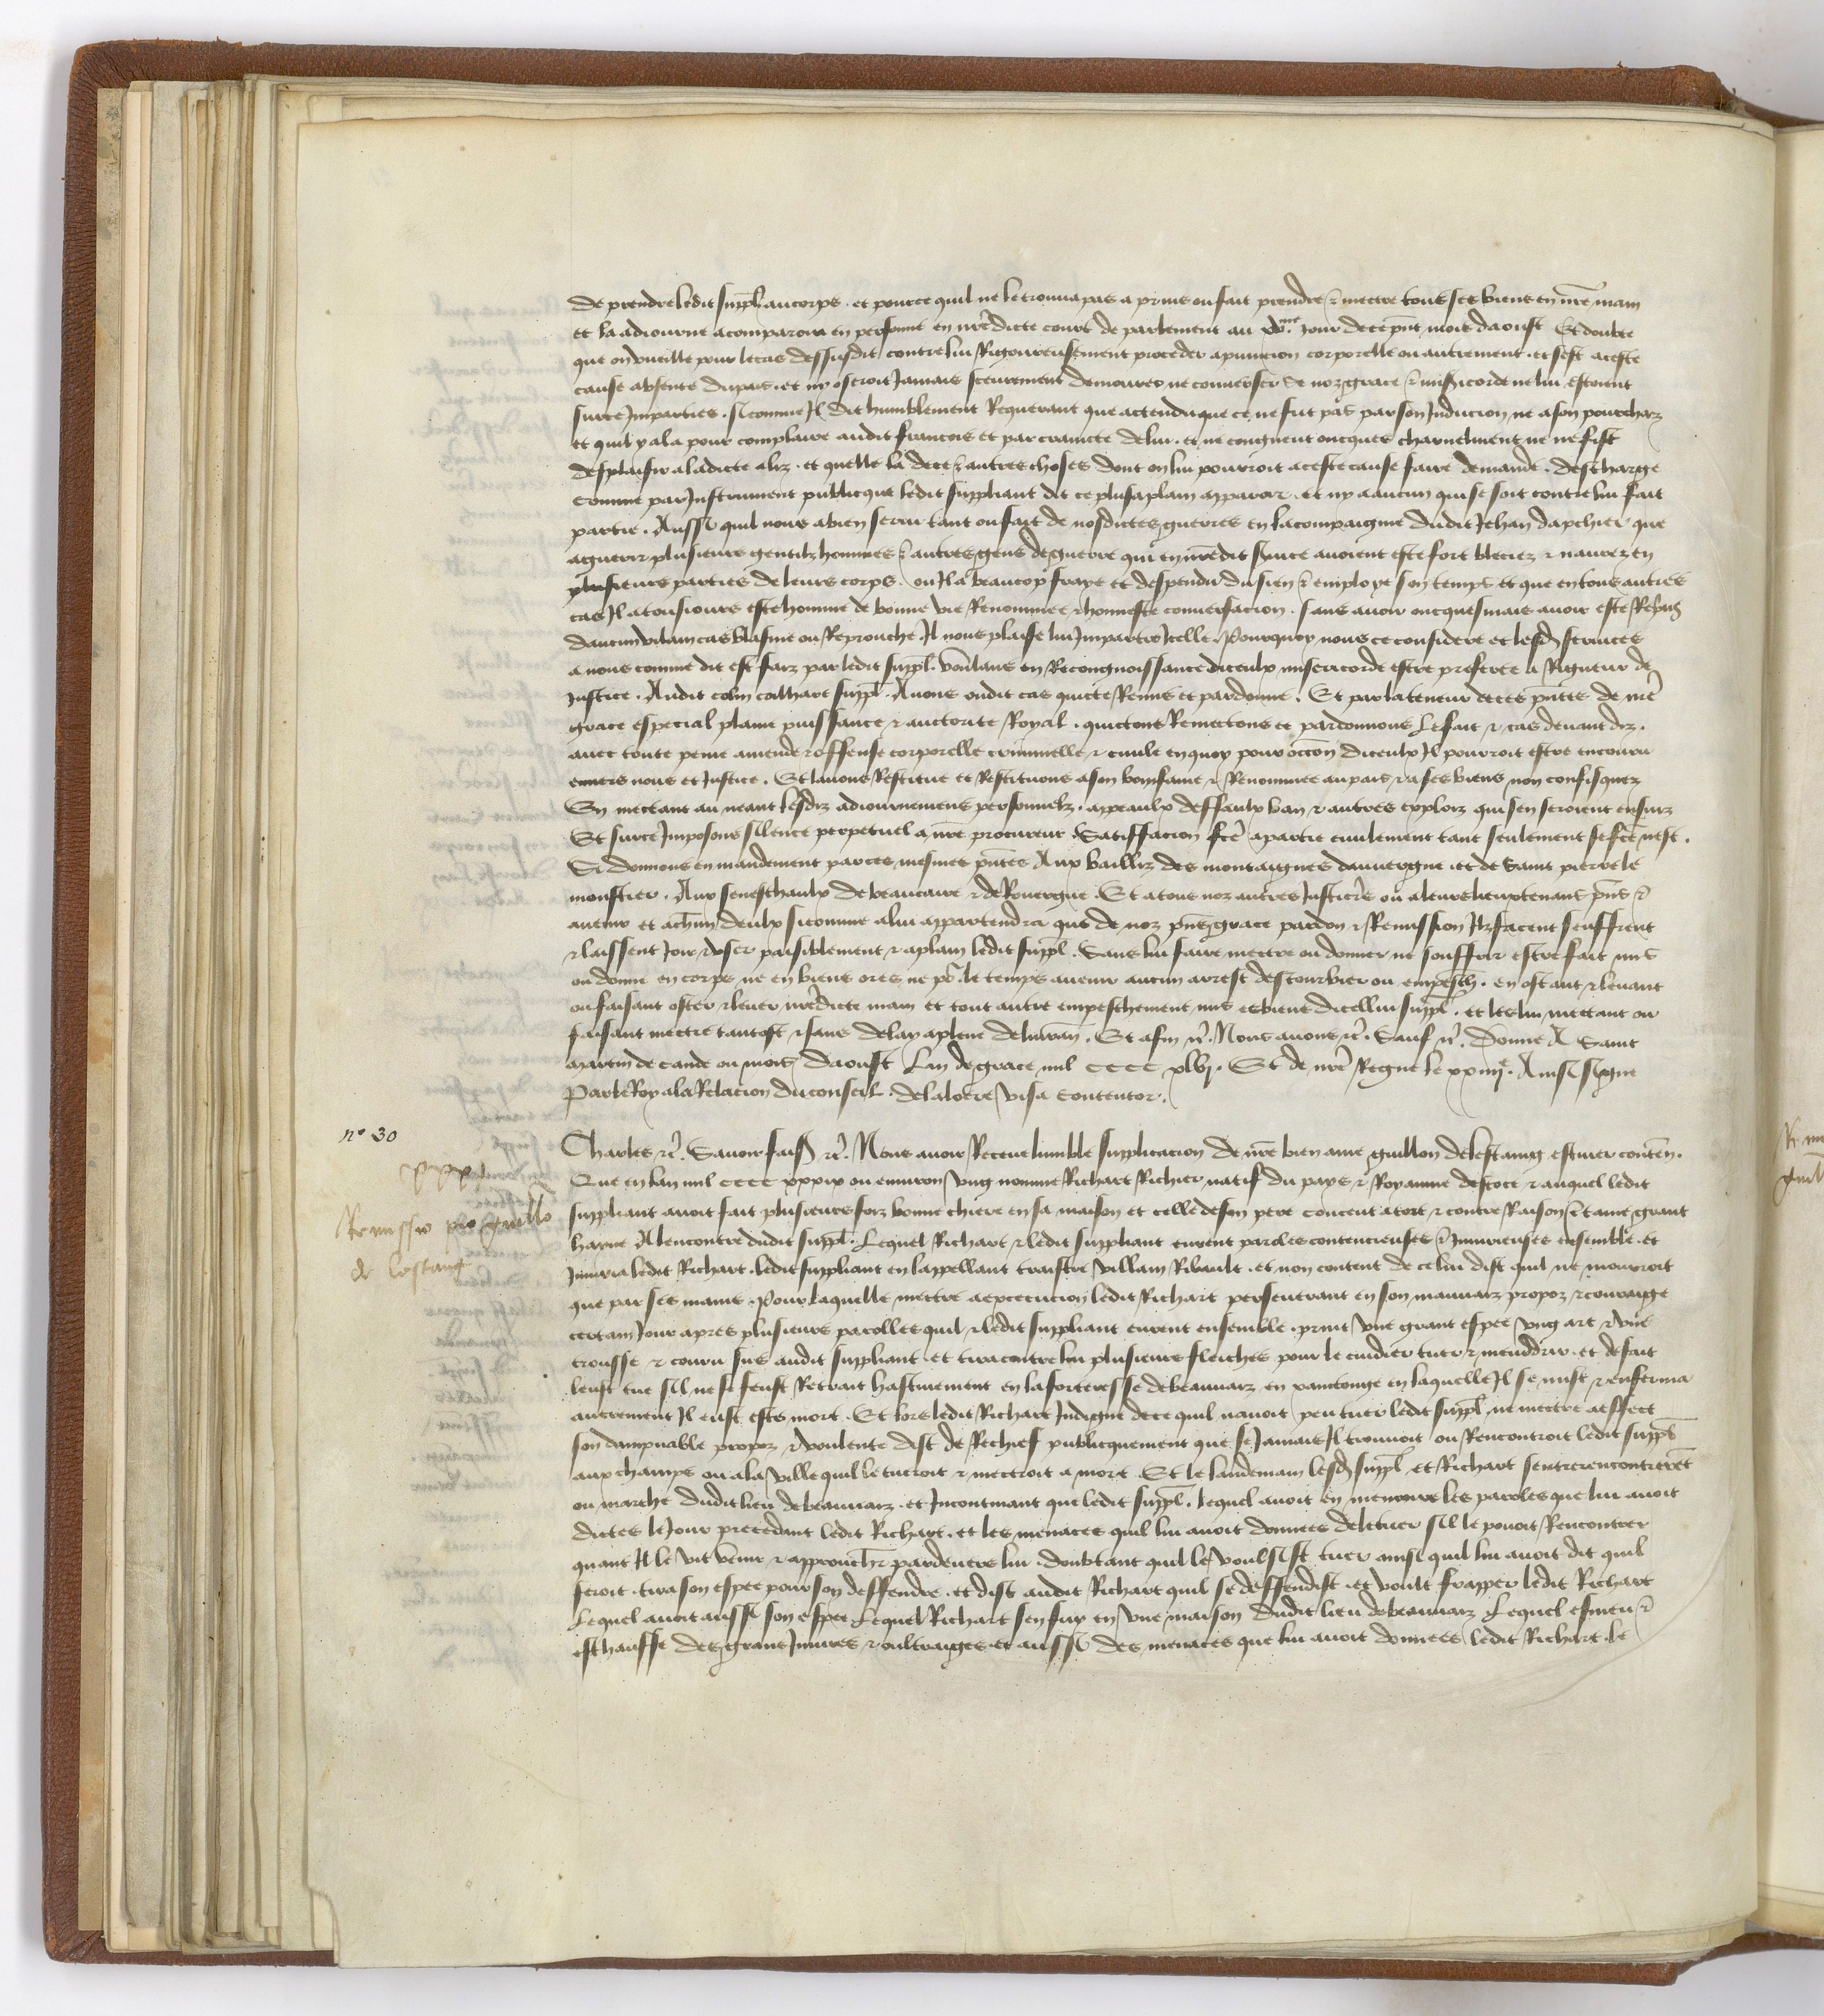 de prendre ledit suppl au corps . et pource quil ne le trouva pas a prins ou fait prendre & mettre tous ses biens en nre main
et la adiourne a comparoir en personne en nre dicte court de parlement au xv.me jour de ce pnt mois daoust Et doubte
que on vueille pour le cas dessusdit contre lui Rigoureusement proceder a punicion corporelle ou autrement . et sest a ceste
cause absente du pais . et ny oseroit Jamais seurement demourer ne converser se noz grace & misericorde ne lui estoient
sur ce Imparties . si comme Il dit humblement Requerant que actendu que ce ne fut pas par son Inducion ne a son pourchaz
et quil y ala pour complaire audit francois et par craincte de lui . et ne congneut oncques charnelment ne ne fist
desplaisir a ladicte aliz . et quelle la de ce & autres choses dont on lui pourroit a ceste cause faire demande . descharge
comme par Instrument publicque ledit suppliant dit ce plus a plain apparoir . et ny a aucun qui se soit contre lui fait
partie . Aussi quil nous a bien servi tant ou fait de nosdictes guerres en la compaignie dudit Jehan dapchier que
a guerir plusieurs gentilz hommes & autres gens de guerre qui en nredit svice avoient este fort bleciez & navrez en
plusieurs parties de leurs corps . ou Il a beaucop fraye et despendu du sien & employe son temps et que en tous autres
cas Il a tousiours este homme de bonne vie Renommee & honneste conversacion . sans avoir oncquesmais avoir este Reprins
daucun vilain cas blasme ou Reprouche Il nous plaise lui Impartir Icelle . Pourquoy nous ce considere et lesd services
a nous comme dit est faiz par ledit suppl . voulans en Recongnoissance diceulx misericorde estre preferee a Rigueur de
Justice . Audit colin cathare suppl . Avons oudit cas quicte Remis et pardonne . Et par la teneur de ces pntes de nre
grace especial plaine puissance & auctorite Royal . quictons Remectons et pardonnons le fait & cas devant diz .
avec toute peine amende & offense corporelle criminelle & civile en quoy pour occon diceulx Il pourroit estre encouru
envers nous et Justice . Et lavons Restitue et Restituons a son bonfame & Renommee au pais & a ses biens non confisquez
En mectant au neant lesdiz adiournemens personnelz . appeaulx deffaulx ban & autres exploiz qui sen seroient ensuiz
Et sur ce Imposons silence perpetuel a nre procureur . Satisffacion fce a partie civilement tant seulement se fce nest .
Si donnons en mandement par ces mesmes pntes Aux bailliz des montaignes dauvergne . et de Saint pierre le
monstier . Aux seneschaulx de beaucaire & de Rouergue . Et a tous noz autres Justiciers ou a leurs lieuxtenans pns &
avenir et a chun deulx si comme a lui appartendra que de noz pns grace pardon & Remission Ilz facent seuffrent
& laissent Joir & user paisiblement & a plain ledit suppl . Sans lui faire mectre ou donner ne souffrir estre fait mis
ou donne en corps ne en biens ores ne po le temps avenir aucun arrest destourbier ou empesch . en ostant & levant
ou faisant oster & lever nre dicte main et tout autre empeschement mis es biens dicellui suppl . et les lui mectant ou
faisant mectre tantost & sans delay a plene delivran . Et afin &c . Nous avons &c . Sauf &c . Donne A Saint
martin de cande ou mois daoust Lan de grace mil CCCC xlvj . Et de nre Regne le xxiiije . Ainsi signe
Par le Roy a la Relacion du conseil . delaloere visa contentor .
no 30
Charles &c . Savoir fais &c . Nous avoir Receue lumble supplicacion de nre bien ame guillon de lestang escuier conten .
Que en lan mil cccc xxxix ou environ Ung nomme Richart Richier natif du pays & Royaume descoce & auquel ledit
Remissio pro guillo
de lestang
suppliant avoit fait plusieurs foiz bonne chiere en sa maison et celle de son pere conceut a tort & contre Raison & tame grant
hayne A lencontre dudit suppl . Lequel Richart & ledit suppliant eurent paroles contencieuses & Iniurieuses ensemble . et
Iniuria ledit Richart . ledit suppliant en lappellant traistre villain Ribault . et non content de ce lui dist quil ne mourroit
que par ses mains . Pour laquelle mectre a excecucion ledit Richart perseverant en son mauvaiz propoz & couraige
certain Jour apres plusieurs parolles quil & ledit suppliant eurent ensemble . print une grant espee Ung arc & une
trousse & couru sus audit suppliant . et tira contre lui plusieurs fleiches pour le cuidier tuer & meurdrir . et de fait
leust tue sil ne se feust Retrait hastivement en la forteresse de beauvaiz en xaintonge en laquelle Il se mist & enferma
autrement Il eust este mort . Et lors ledit Richart Indigne de ce quil navoit peu tuer ledit suppl ne mectre a effect
son dampnable propoz & voulente dist de Rechief publicquement que se Jamais Il trouvoit ou Rencontroit ledit suppl
aux champs ou a la ville quil le tueroit & mectroit a mort . Et le landemain lesd suppl et Richart sentrerencontreret
ou marche dudit lieu de beauvaiz . et Incontinant que ledit suppl . lequel avoit en memoire les paroles que lui avoit
dictes le Jour precedant ledit Richart . et les menaces quil lui avoit donnees de le tuer sil le povoit Rencontrer
quant Il le vit venir & approucher pardevers lui . doubtant quil le voulsist tuer ainsi quil lui avoit dit quil
feroit . tira son espee pour son deffendre . et dist audit Richart quil se deffendist . et voult frapper ledit Richart
Lequel avoit aussi son espee Lequel Richart sen fuy en une maison dudit lieu de beauvaiz Lequel esmeu &
eschauffe des grans Iniures & oultraiges . et aussi des menaces que lui avoit donnees ledit Richart . le